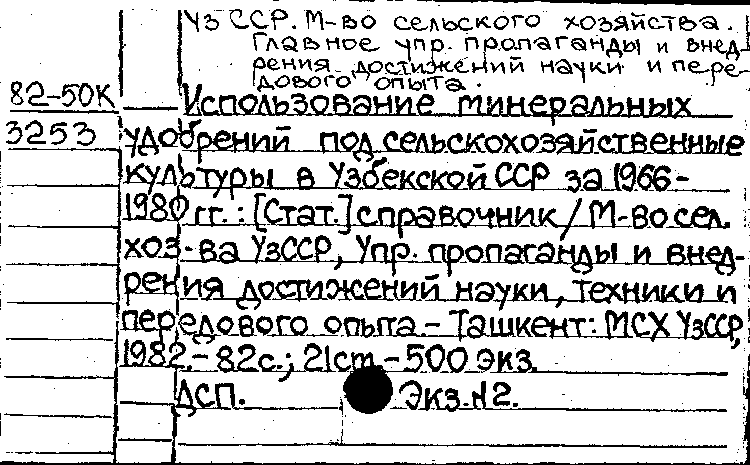 Уз ССР. М-во сельского хозяйства.
Главное упр. пропаганды и внед-
рения достижений науки и пере-
дового опыта.
82-50К
3253
Использование минеральных
удобрений под сельскохозяйственные
культуры в Узбекской ССР за 1966-
1980 гг.: [Стат.] справочник / М-во сел.
хоз-ва УзССР, Упр. пропаганды и внед-
рения достижений науки, техники и
передового опыта - Ташкент: МСХ УзССР,
1982. - 82с.; 21cm - 500 экз.
ДСП. Экз. №2.